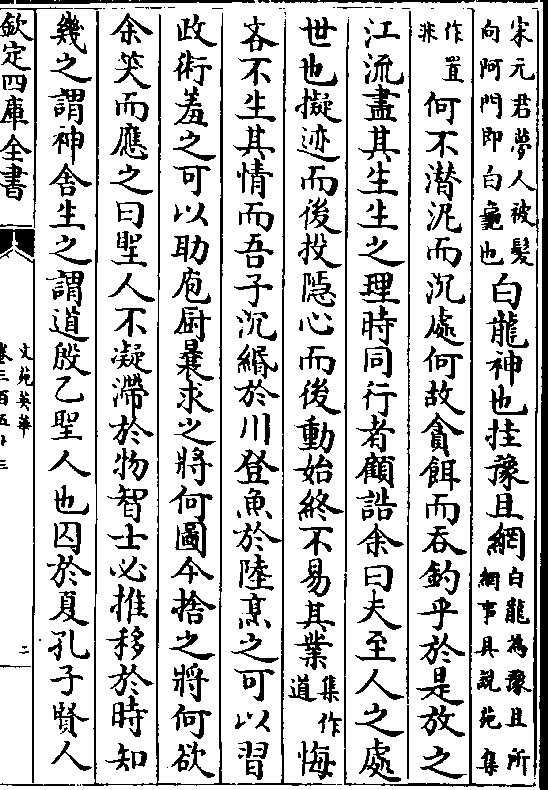 宋元君夢人被髮
向阿門即白龜也
白龍神也挂豫且網
白龍為豫且所
網事具說苑集
作罝
非
何不潜泥而沉處何故貪餌而吞釣乎於是放之
江流盡其生生之理時同行者顧誥余曰夫至人之處
世也擬迹而後投隠心而後動始終不易其業
集作
道
悔
吝不生其情而吾子沉緡於川登魚於陸烹之可以習
政術羞之可以助庖厨曩求之將何圖今捨之將何欲
余笑而應之曰聖人不凝滯於物智士必推移於時知
幾之謂神舍生之謂道殷乙聖人也囚於夏孔子賢人
欽定四庫全書
文苑英華
卷三百五十三
二